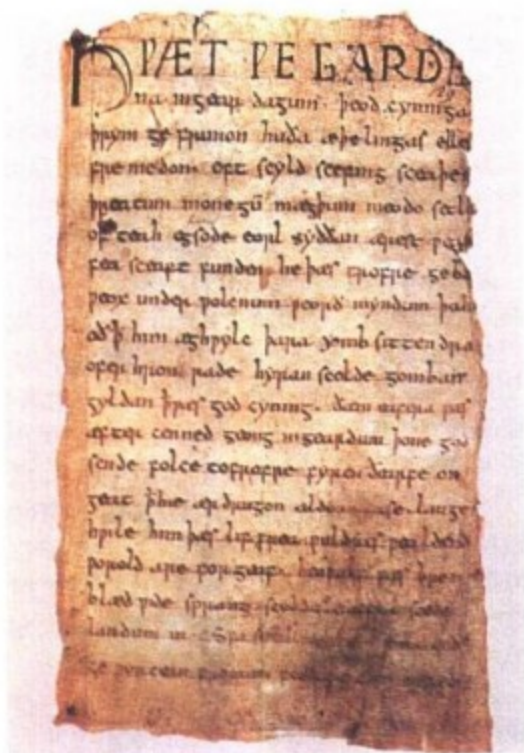 HǷÆT ǷE GARDE
na ingear dagum. þeod cyninga
þrym ge frunon huða æþelingas elle
fremedon. oft scyld scefing sceaþe
þreatum monegū mægþum meodo setla
of teah egsode eorl syððan ærest ƿear
fea sceaft funden he þæs frofre geba
ƿeox under ƿolcnum ƿeorð myndum þah
oðþ him æghƿylc þara ymb sittendra
ofer hron rade hyran scolde gomban
gyldan þæs god cyning. ðæm eafera ƿæs
æfter cenned geong ingeardum þone god
sende folce tofrofre fyren ðearfe on
geat þhie ær drugon aldor ase. lange
hƿile him þæs lif frea ƿuldres ƿealdend
ƿorold are forgeaf. ƿæs
blæd ƿide sprang scyldes eafera
landum in. Sƿa